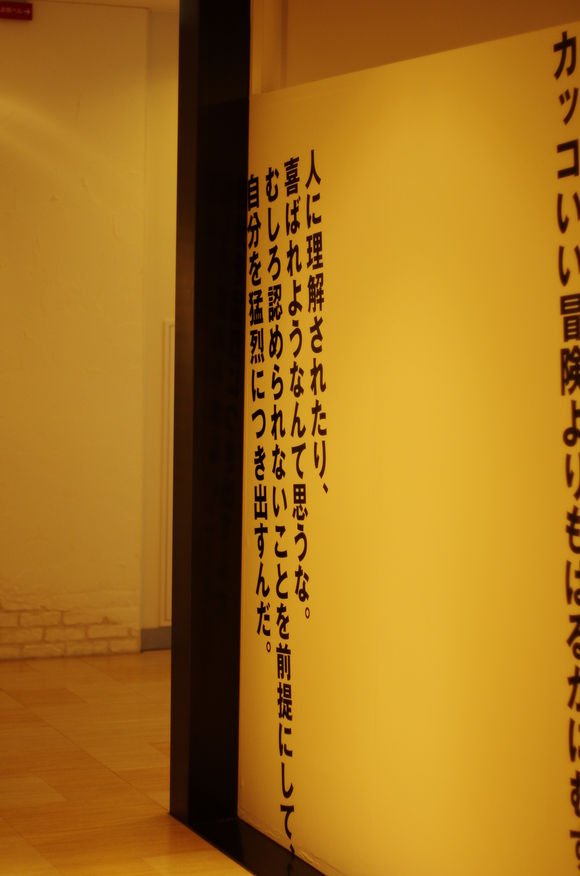 カッコいい冒険よりもはるかにむず
人に理解されたり、
喜ばれようなんて思うな。
むしろ認められないことを前提にして、
自分を猛烈につき出すんだ。